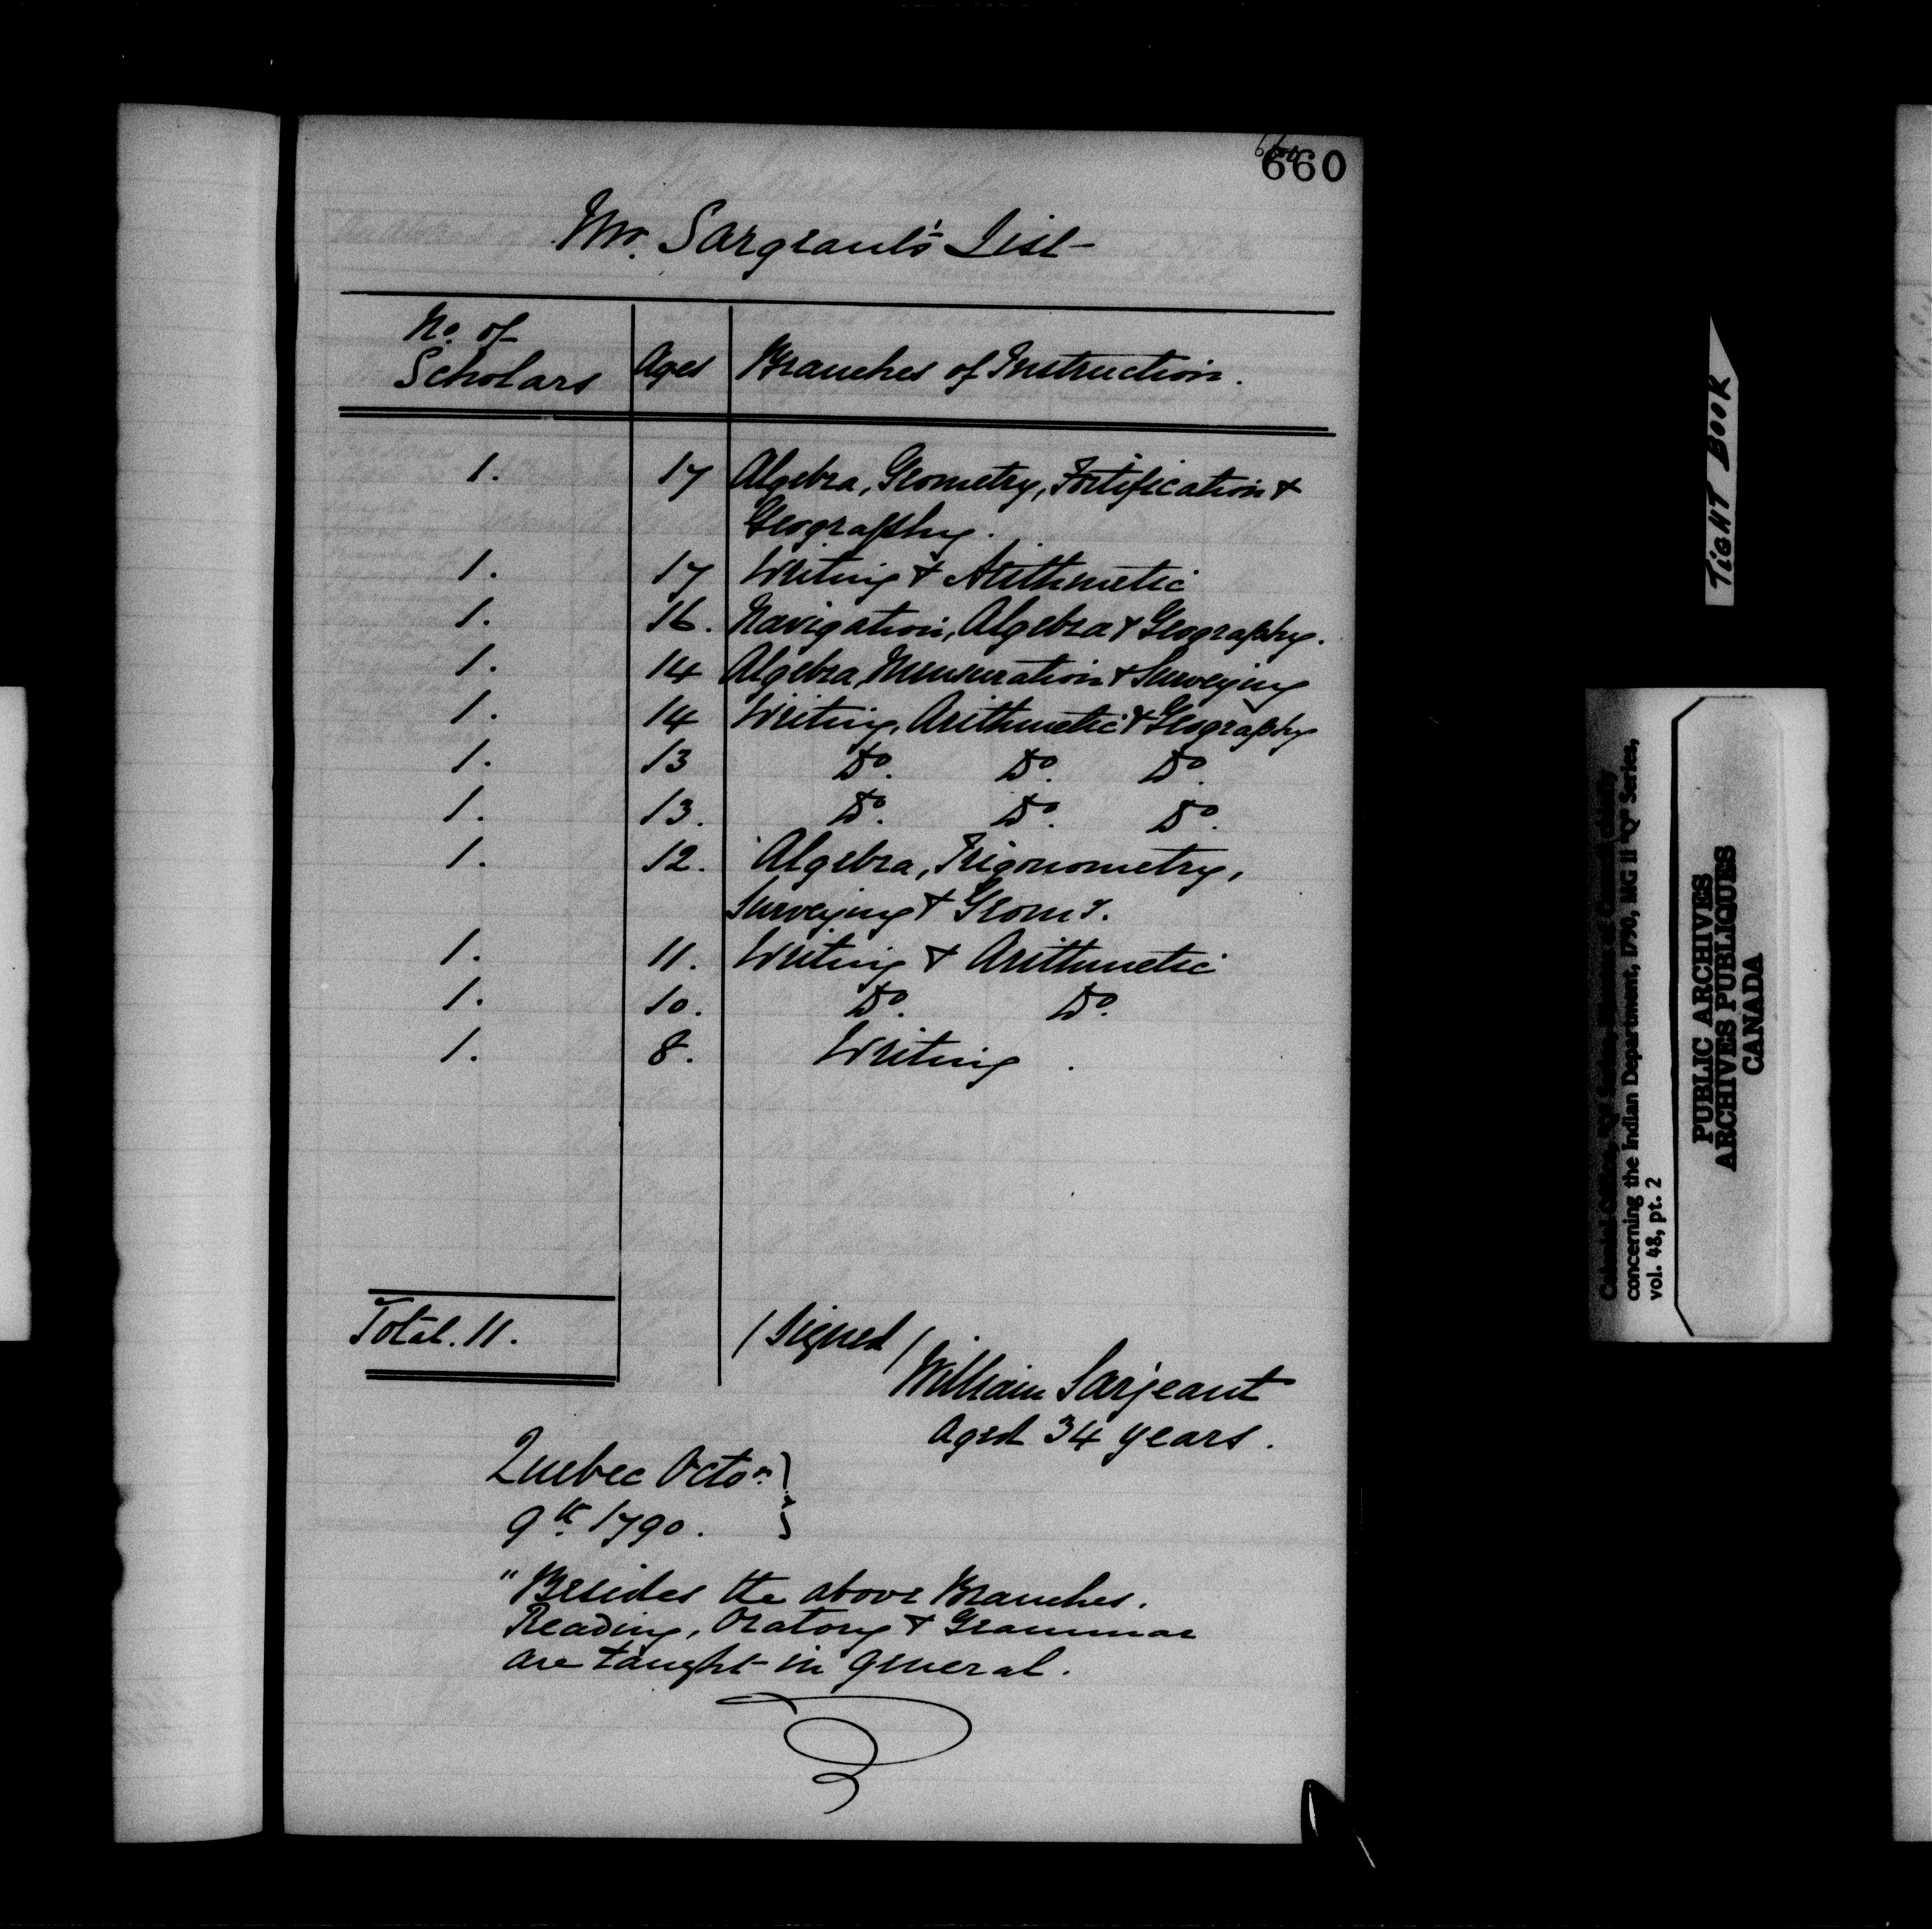 660
Mr. Sargeant's List
No. of
Scholars
Ages
Branches of Instruction.
1. 17 Algebra, Geometry, Fortification &
Geography.
1. 17 Writing & Arithmetic
1. 16. Navigation, Algebra & Geography.
1. 14 Algebra, Mensuration & Surveying
1. 14 Writing, Arithmetic & Geography
1. 13 Do. Do. Do.
1. 13. Do. Do. Do.
1. 12. Algebra, Trigonometry,
Surveying & Geomy.
1. 11. Writing & Arithmetic
1. 10. Do. Do.
1. 8. Writing.
Total. 11.
(Signed)
William Sarjeant
Aged 34 years.
Quebec Octor. }
9th 1790.
"Besides the above Branches.
Reading, Oratory & Grammar
are taught in general.
TIGHT BOOK
concerning the Indian Department, 1790, MG 11 "Q" Series,
vol. 48, pt. 2
PUBLIC ARCHIVES
ARCHIVES PUBLIQUES
CANADA